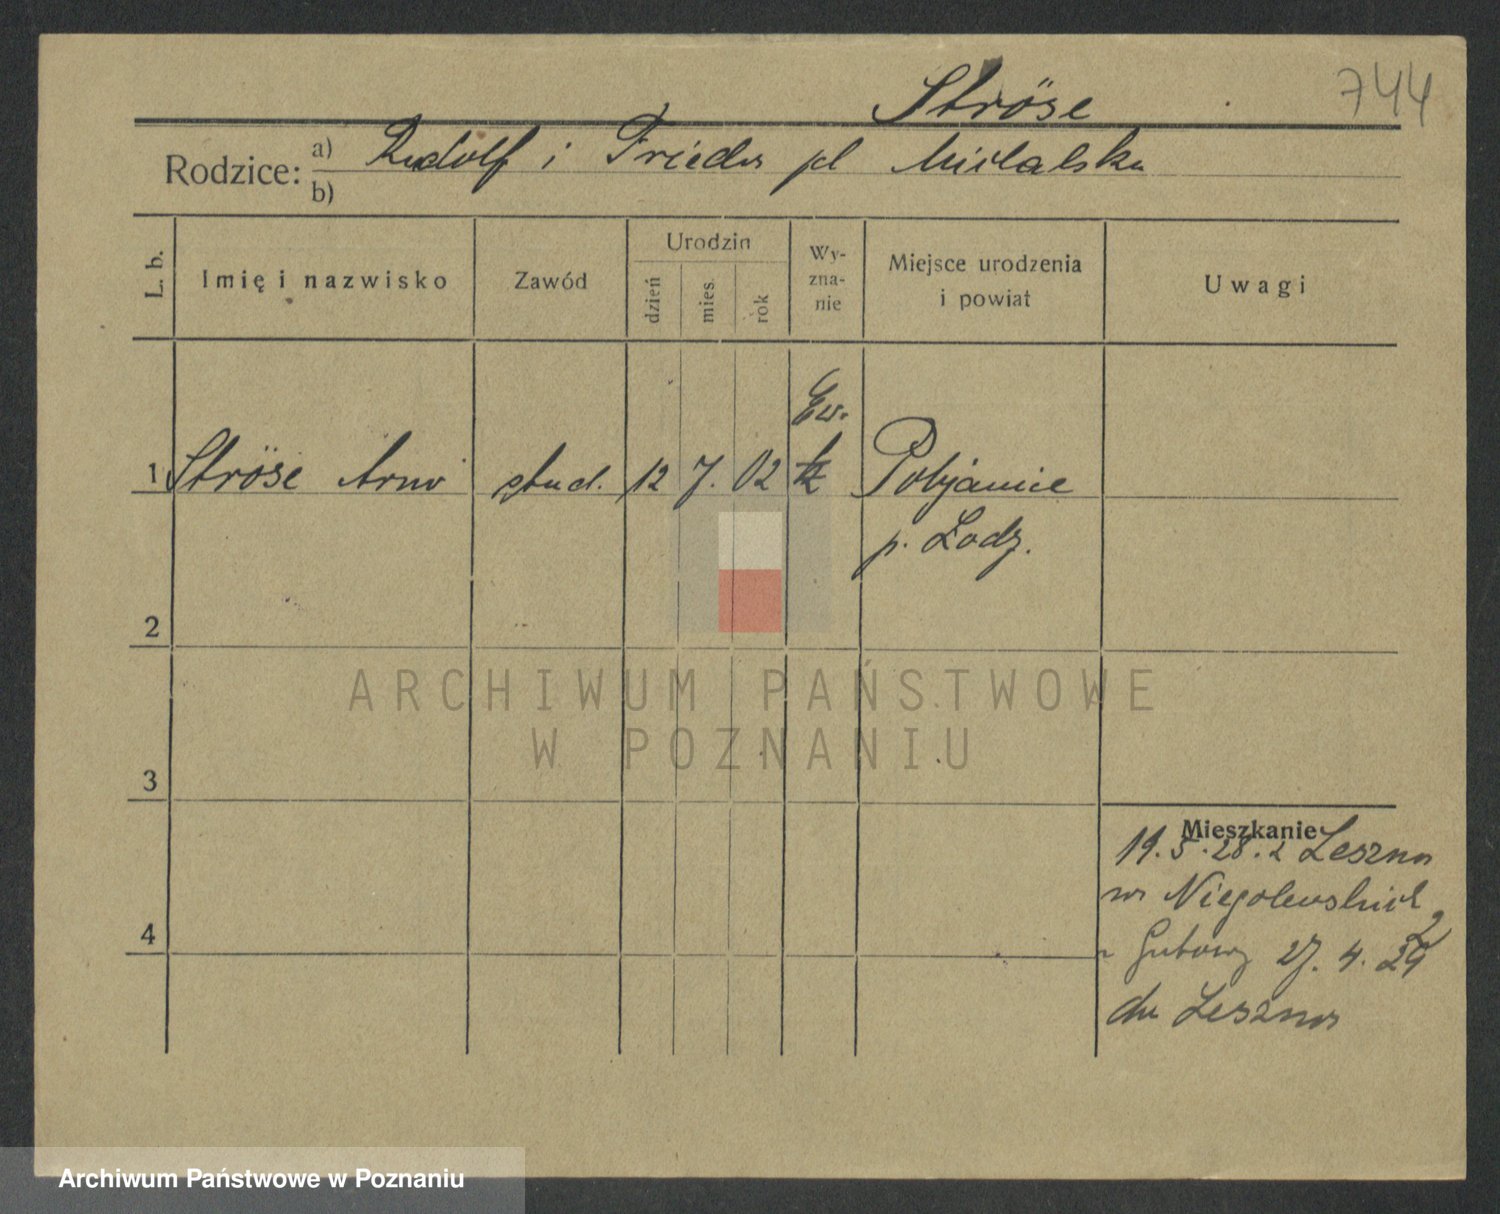 Ströse
744
Rodzice: a) Rudolf i Frieda
b)
L. b.
Imię i nazwisko
Zawód
Urodzin
dzień
mies.
rok
Wy-
zna-
nie
Miejsce urodzenia
i powiat
Uwagi
Ew.
1 Ströse Arno stud. 12 7. 02 Pabjanice
p. Łodz.
2
3
4
ARCHIWUM PAŃSTWOWE
W POZNANIU
Mieszkanie
19.5.28. z Leszna
Niegolewskich 2
Gutowy 27. 4. 29
do Leszna
Archiwum Państwowe w Poznaniu